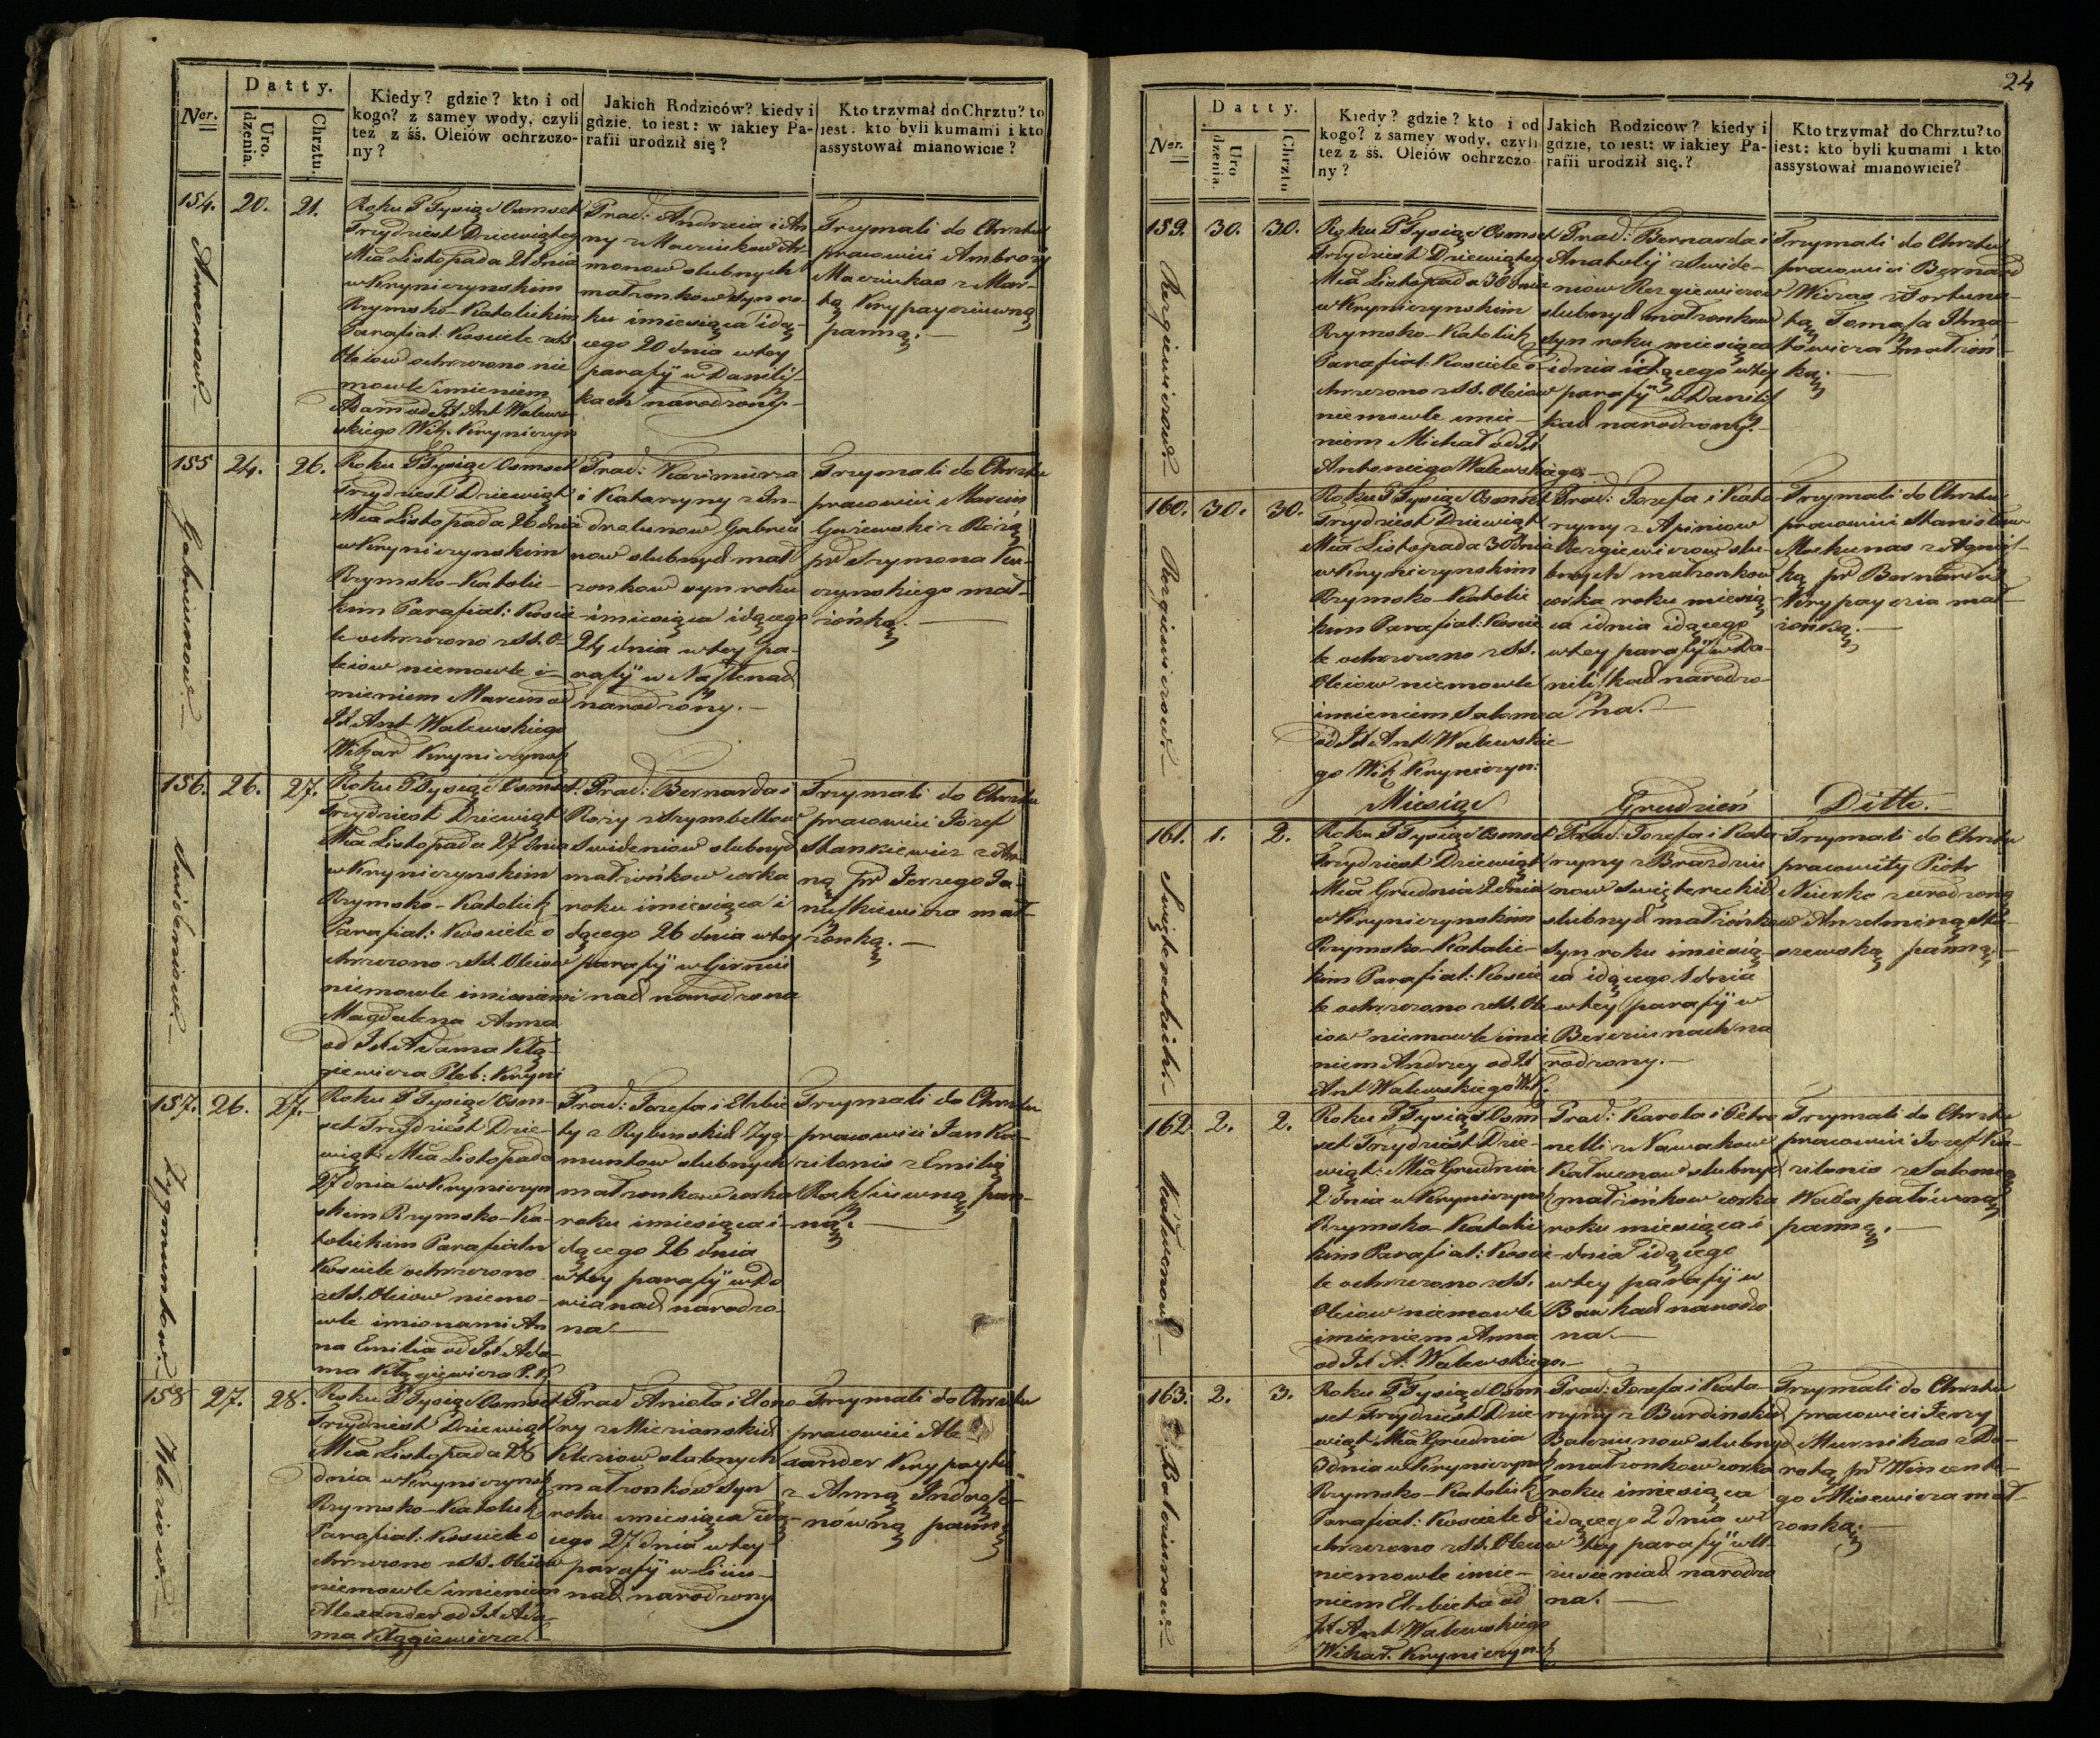 Datty.
Ner.
Uro.
dzenia.
Chrztu.
Kiedy? gdzie? kto i od
kogo? z samey wody, czyli
też z śś. Oleiów ochrzczo-
ny?
Jakich Rodziców? kiedy i
gdzie, to iest: w iakiey Pa-
rafii urodził się?
Kto trzymał do Chrztu? to
iest: kto byli kumami i kto
assystował mianowicie?
154. 20. 21.
Roku P Tysiąc Osmset
Trzydziest Dziewiąteg
Mca Listopada 21 dnia
w Kryniczynskim
Rzymsko-Katolickim
Parafial: Kosciele z SS
Oleiow ochrzczono nie
mowle imieniem
Adam od JX Ant Walew
skiego Wik. Kryniczyn
Prac: Andrzeia i An
ny z Macziukow Ar
monow slubnych
małżonkow syn ro-
ku i miesiąca idą-
cego 20 dnia w tey
parafij w Danilisz-
kach narodzony.-
Trzymali do Chrztu
pracowici Ambroży
Macziukas z Mar-
tą Krypayciuwną
panną.-
155 24. 26.
Gabriunow.-
Roku P Tysiąc Osmset
Trzydziest Dziewiąt
Mca Listopada 26 dnia
w Kryniczynskim
Rzymsko-Katolic-
kim Parafial: Koscie
le ochrzczono z SS. O-
leiow niemowle i-
mieniem Marcin od
JX Ant Walewskiego
Wikar Kryniczynsk
Prac: Kazimierza
i Katarzyny z An-
drelunow Gabriu
now slubnych mał
zonkow syn roku
i miesiąca idącego
24 dnia w tey pa-
rafij w
narodzony.-
Trzymali do Chrztu
pracowici Marcin
z Różą
pd Szymona
mał-
żonką.-
156. 26. 27.
Swideniow.-
Roku P Tysiąc Osmset
Trzydziest Dziewiąt
Mca Listopada 27 dnia
w Kryniczynskim
Rzymsko-Katolick
Parafial: Kosciele o
chrzczono z SS. Oleiow
niemowle imionami
Magdalena Anna
od JX Adama Kłą-
giewicza Pleb: Kryni
Prac: Bernarda i
Rozy z Szymbelow
Swideniow slubnych
małżońkow corka
roku i miesiąca i
dącego 26 dnia w tey
parafij w Girniu
nach narodzona
Trzymali do Chrztu
pracowici Jozef
Stankiewicz z An
ną pd Jerzego Ja-
nuszkiewicza mał-
zonką.-
157. 26. 27.-
Zygmuntow.
Roku P Tysiąc Osm-
set Trzydziest Dzie-
wiąt: Mca Listopada
27 dnia w Kryniczyn
skim Rzymsko-Ka-
tolickim Parafialn
Kosciele ochrzczono
z SS. Oleiow niemo-
wle imionami An
na Emilia od JX Ada
ma Kłągiewicza P. K.
Prac: Jozefa i Elzbie
ty z Rybinskich Zyg-
muntow slubnych
małzonkow corka
roku i miesiąca i-
dącego 26 dnia
w tey parafij w Do
wianach narodzo-
na.-
Trzymali do Chrztu
pracowici Jan Ka-
zilonis z Emilią
pan-
ną.-
158 27. 28.
Roku P Tysiąc Osmset
Trzydziest Dziewiąt
Mca Listopada 28
dnia w Kryniczynsk
Rzymsko-Katolick
Parafial: Kosciele o
chrzczono z SS. Oleiow
niemowle imieniem
Alexander od JX Ada-
ma Kłągiewicza.-
Prac Anioła i Eleono
ry z Miezianskich
slubnych
małzonkow syn
roku i miesiąca idą-
cego 27 dnia w tey
parafij w Liiu-
nach narodzony
Trzymali do Chrztu
pracowici Ale
xander
z Anną
panną
24
Datty.
Ner.
Uro
dzenia.
Chrztu
Kiedy? gdzie? kto i od
kogo? z samey wody, czyli
też z śś. Oleiów ochrzczo
ny?
Jakich Rodziców? kiedy i
gdzie, to iest: w iakiey Pa-
rafii urodził się.?
Kto trzymał do Chrztu? to
iest: kto byli kumami i kto
assystował mianowicie?
159. 30. 30.
Rezgiewiczow.-
Roku P Tysiąc Osmset
Trzydziest Dziewiąteg
Mca Listopada 30 dnia
w Kryniczynskim
Rzymsko-Katolick
Parafial: Kosciele o-
chrzczono z SS. Oleiow
niemowle imie-
niem Michał od JX
Antoniego Walewskiego.-
Prac: Bernarda i
Anatolij z Swide-
niow Rezgiewiczow
slubnych małzonkow
syn roku miesiąca
i dnia idącego w tey
parafij w Danilisz
kach narodzony.-
Trzymali do Chrztu
pracowici Bernard
z Fortuna-
tą Tomasza
małżon-
ką.-
160. 30. 30.
Rezgiewiczow.-
Roku P Tysiąc Osmset
Trzydziest Dziewiąt
Mca Listopada 30 dnia
w Kryniczynskim
Rzymsko-Katolic
kim Parafial: Koscie
le ochrzczono z SS.
Oleiow niemowle
imieniem Salomea
od JX Ant Walewskie
go Wik Kryniczyn:
Prac: Jozefa i Kata
rzyny z Apinow
Rezgiewiczow slu-
bnych małzonkow
corka roku miesią
ca i dnia idącego
w tey parafij w Da-
niliszkach narodzo
na.-
Trzymali do Chrztu
pracowici Stanisław
Mockunas z Agniesz-
ką pd Bernarda
Krypaycia mał-
żonką.-
Miesiąc Grudzień Ditto.-
161. 1. 2.
Swięterzeckich.
Roku P Tysiąc Osmset
Trzydziest Dziewiąt
Mca Grudnia 2 dnia
w Kryniczynskim
Rzymsko-Katolic-
kim Parafial: Koscie
le ochrzczono z SS. Ole
iow niemowle imie
niem Andrzey od JX
Ant Walewskiego W.K.
Prac: Jozefa i Kata
rzyny z Brazdziu
now Swięterzeckich
slubnych małżonkow
syn roku i miesią-
ca idącego 1 dnia
w tey parafij w
Berziunach na
rodzony.-
Trzymali do Chrztu
pracowity Piotr
z urodzoną
Anzelminą Sta-
szewską panną.-
162 2. 2.
Katwenow.-
Roku P Tysiąc Osm
set Trzydziest Dzie-
wiąt: Mca Grudnia
2 dnia w Kryniczynsk
Rzymsko-Katolic
kim Parafial: Koscie
le ochrzczono z SS.
Oleiow niemowle
imieniem Anna
od JX A: Walewskiego.-
Prac: Karola i Petro
nelli z Nowakow
Katwenow slubnych
małżonkow corka
roku miesiąca i
dnia idącego
w tey parafij w
narodzo
na.-
Trzymali do Chrztu
pracowici Jozef Ka-
zilonis z Salomeą
panną.-
163. 2. 3.
Balcziunow.-
Roku P Tysiąc Osm
set Trzydziest Dzie
wiąt Mca Grudnia
3 dnia w Kryniczynsk
Rzymsko-Katolick
Parafial: Kosciele o
chrzczono z SS. Oleiow
niemowle imie-
niem Elzbieta od
JX Ant Walewskiego
Wikar. Kryniczynsk
Prac: Jozefa i Kata
rzyny z Burdinskich
Balcziunow slubnych
małzonkow corka
roku i miesiąca
idącego 2 dnia w
tey parafij w
narodzo
na.-
Trzymali do Chrztu
pracowici Jerzy
Murnikas z Do-
rotą pd Wincente-
go Misewicza mał-
zonką.-